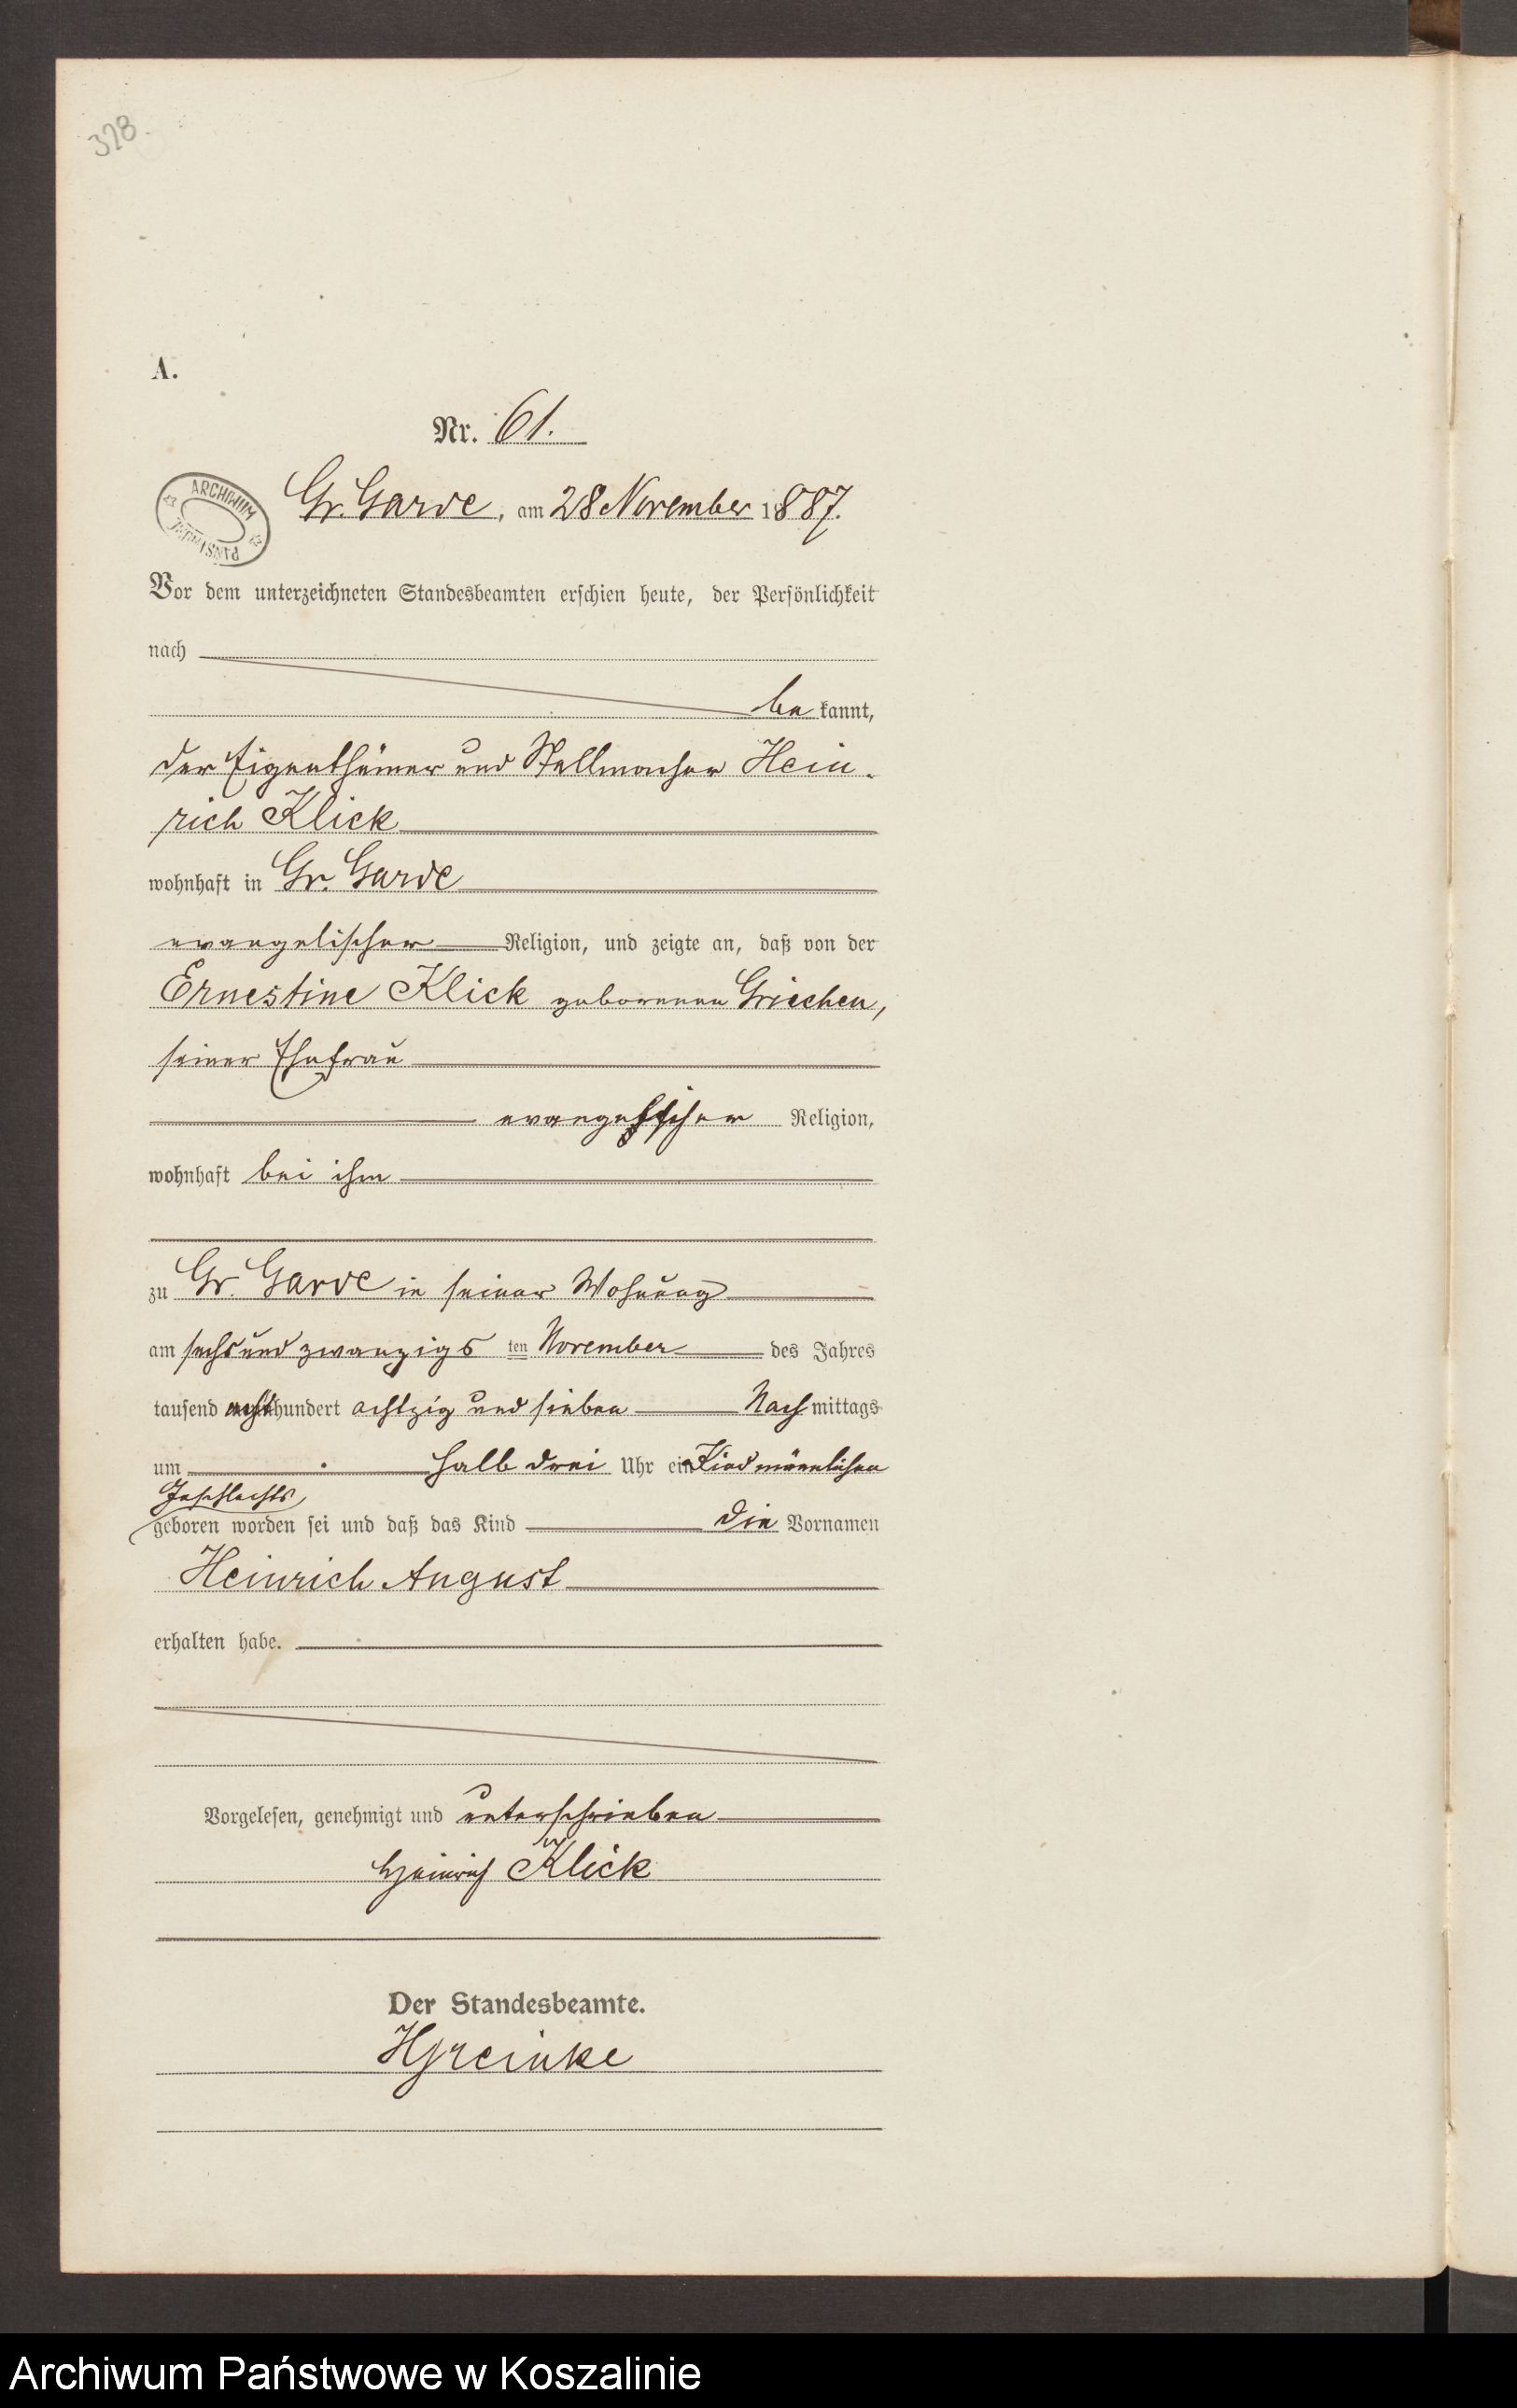 328.
A.
Nr. 61.
ARCHIWUM
PAŃSTWOWE
Gr. Garde, am 28 November 1887.
Vor dem unterzeichneten Standesbeamten erschien heute, der Persönlichkeit
nach
be kannt,
der Eigenthümer und Stellmacher Hein-
rich Klick
wohnhaft in Gr. Garde
evangelischer Religion, und zeigte an, daß von der
Ernestine Klick geborenen Griechen,
seiner Ehefrau
evangelischer Religion,
wohnhaft bei ihm
zu Gr. Garde in seiner Wohnung
am sechsundzwanzigs ten November des Jahres
tausend achthundert achtzig und sieben Nach mittags
um halb drei Uhr ein Kind männlichen
Geschlechts
geboren worden sei und daß das Kind die Vornamen
Heinrich August
erhalten habe.
Vorgelesen, genehmigt und unterschrieben
Heinrich Klick
Der Standesbeamte.
Archiwum Państwowe w Koszalinie